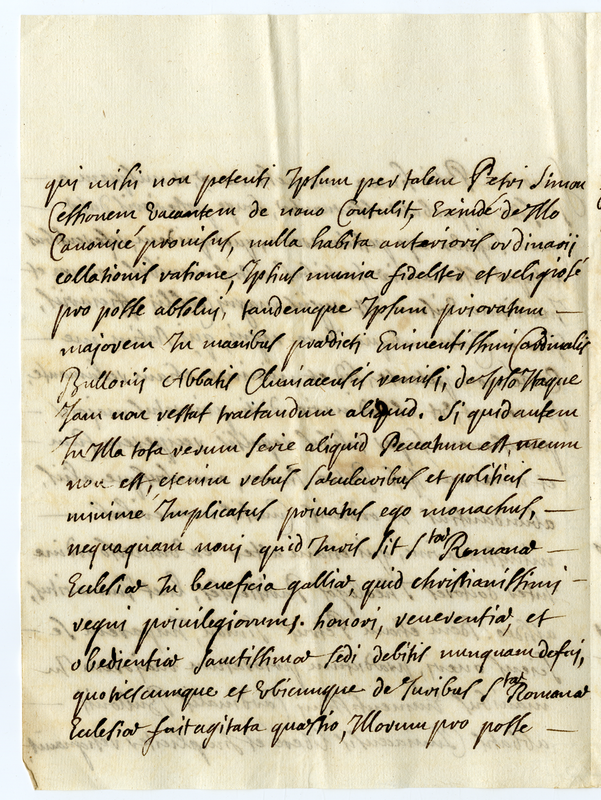 qui mihi non petenti Ipsum per talem Petri Simon
Cessionem vacantem de novo Contulit, Exinde de Illo
Canonicé provisus, nulla habita anterioris ordinarij
collationis ratione, Ipsius munia fideliter et religiosé
pro posse absolvi, tandemque Ipsum prioratum —
majorem In manibus praedicti Eminentissimi Cardinalis
Bullonij Abbatis Cluniacensis remisi, de Ipso Itaque
Iam non restat tractandum aliquid. Si quid autem
In Illa tota rerum serie aliquid Peccatum est, meum
non est, etenim rebus saecularibus et politicis —
minimé Implicatus privatus ego monachus, —
nequaquam novi quid Iuris sit Stae Romanae —
Ecclesiae In beneficia galliae, quid christianissimi —
regni privilegiorum. honori, reverentiae, et
obedientiae sanctissimae sedi debitis nunquam defui,
quotiescumque et Ubicumque de Iuribus Stae Romanae
Ecclesiae fuit agitata quaestio, Illorum pro posse —